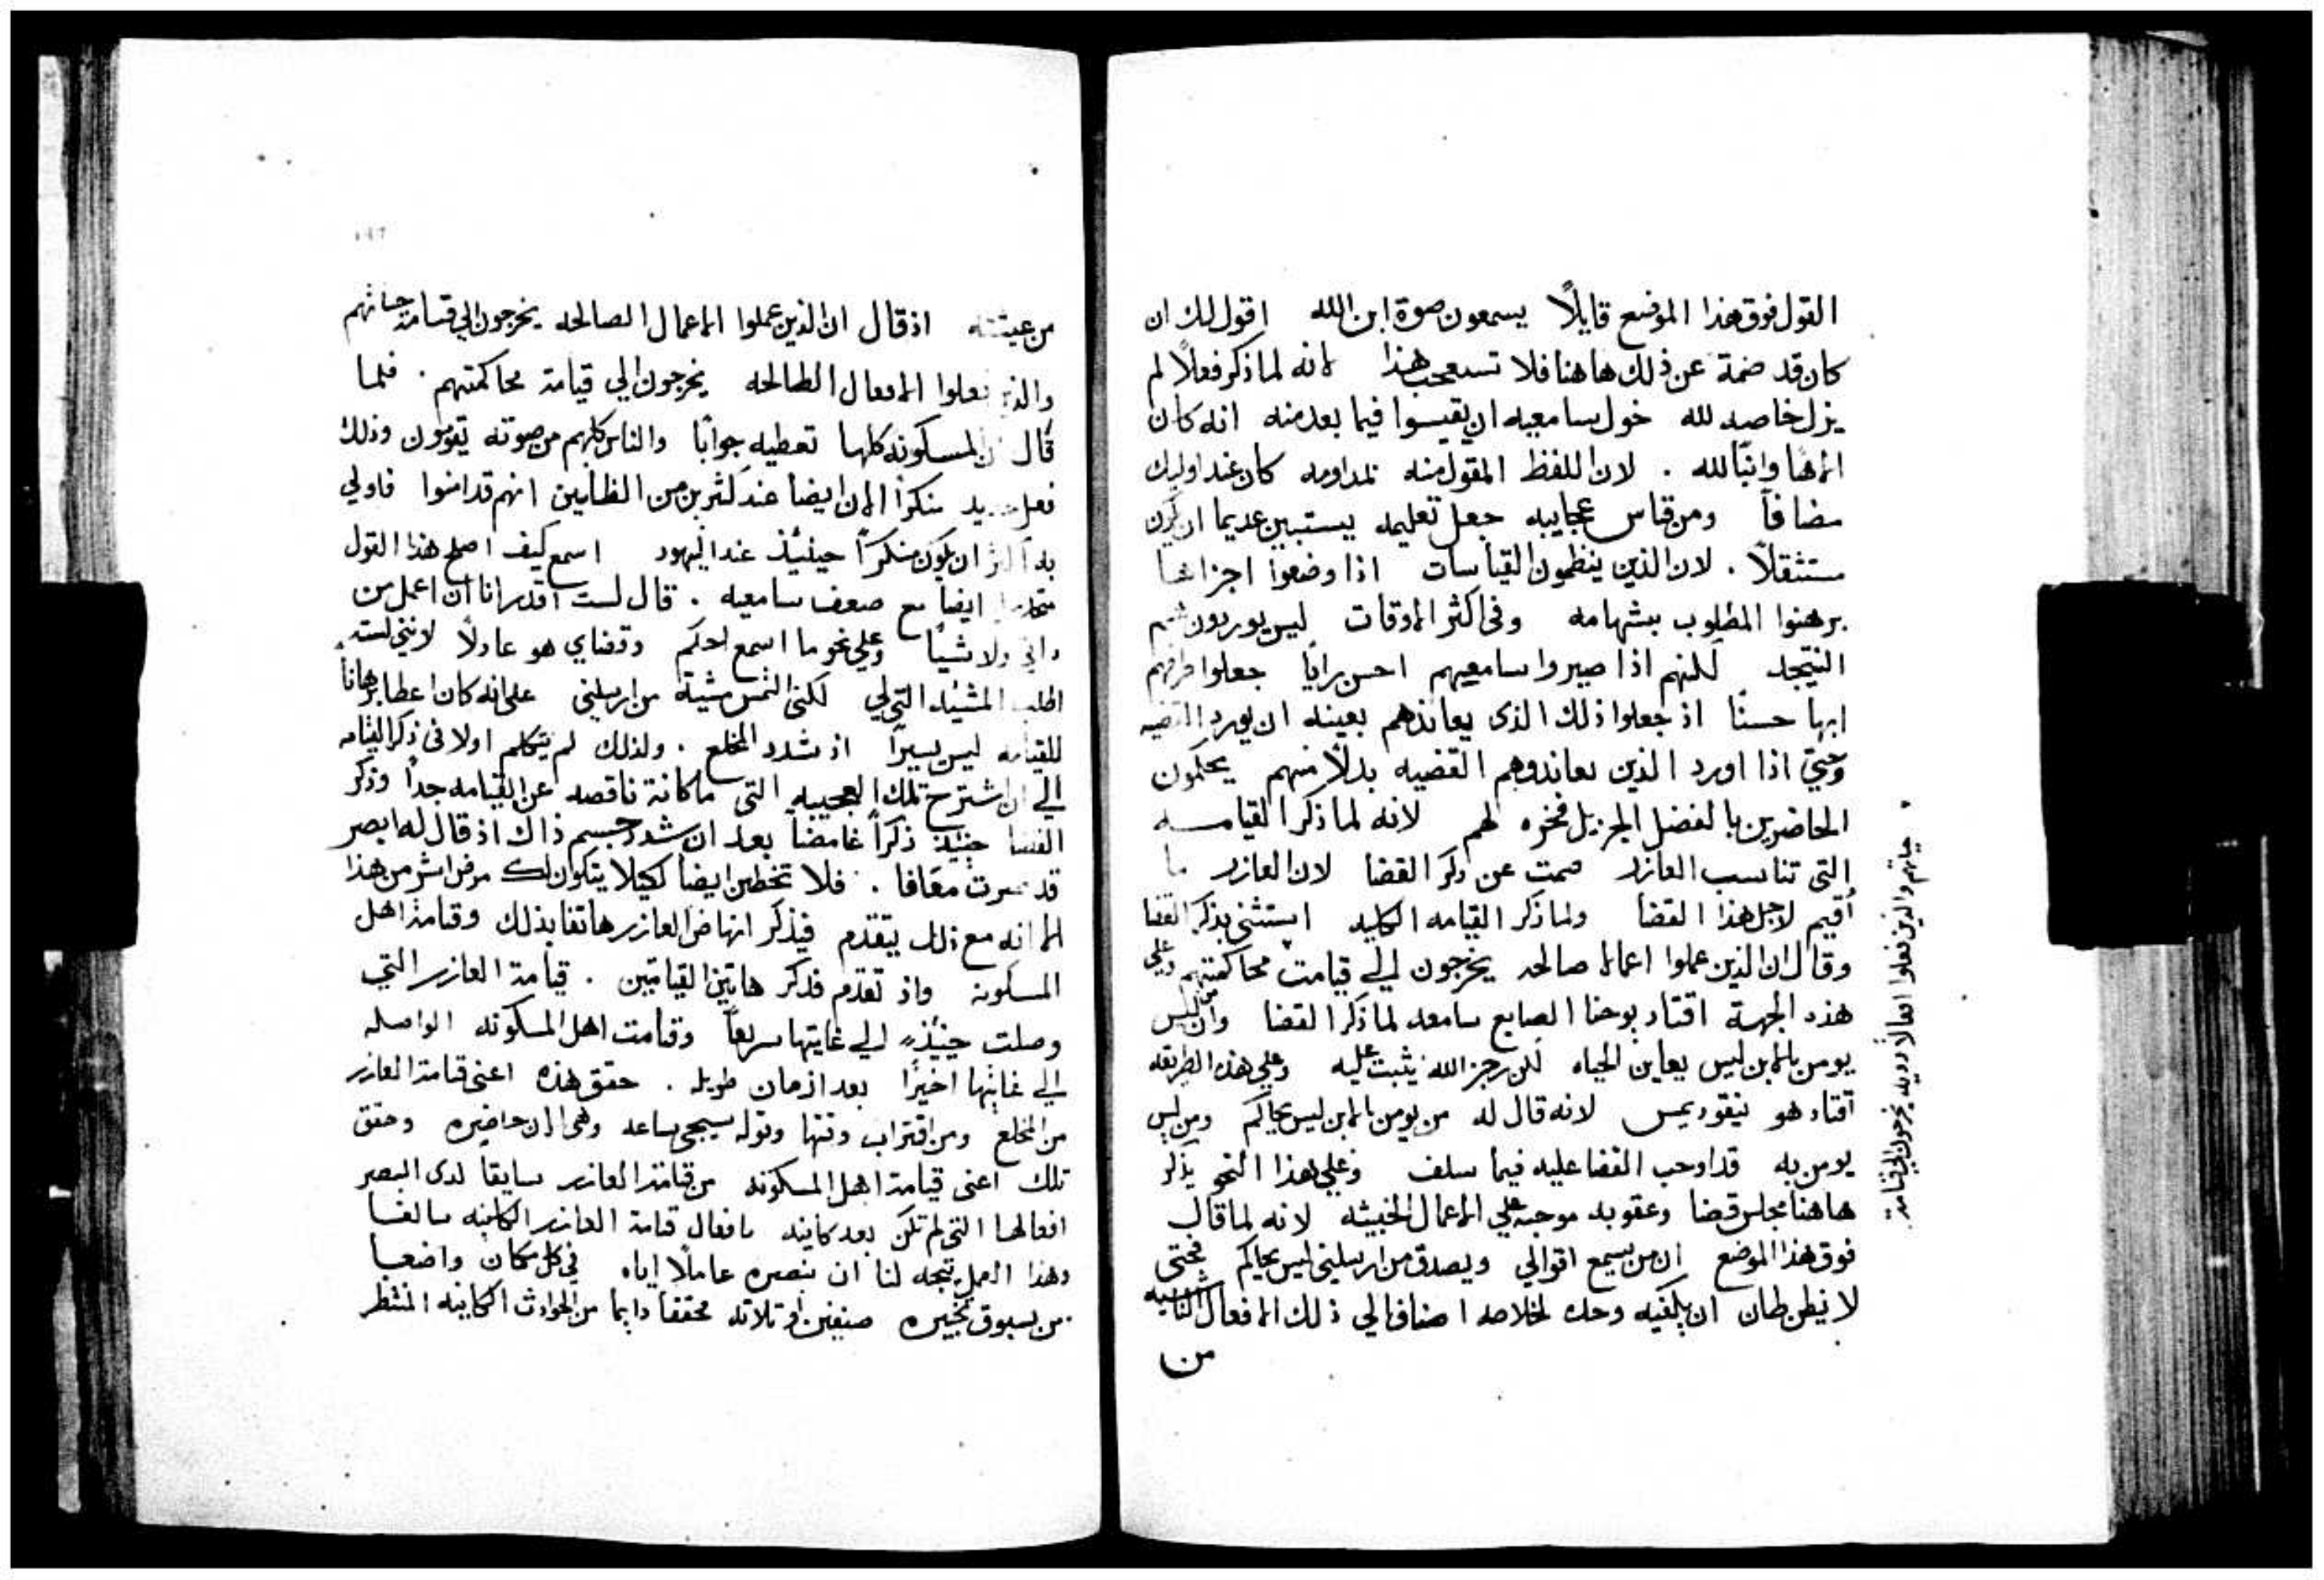 القول فوق هذا الموضع قايلاً يسمعون صوة ابن الله اقول لك ان
كان قد صمة عن ذلك هاهنا فلا تستعجب هذا لانه لما ذكر فعلاً لم
يزل خاصه لله خول سامعيه ان يقيسوا فيما بعد منه انه كان
الاهًا وابنًا لله . لان اللفظ المقول منه بمداومه كان عند اوليك
مضافاً ومن قياس عجاييبه جعل تعليمه يستبين عديما ان يكون
مستثقلاً . لان الذين ينظمون القياسات اذا وضعوا اجزاها
برهنوا المطلوب بشهامه وفى اكثر الاوقات ليس يوردون هم
النتيجه لكنهم اذا صيروا سامعيهم احسن رايًا جعلوا
ابها حسنًا اذ جعلوا ذلك الذى يعاندهم بعينه ان يورد القضيه
وحتي اذا اورد الذين يعاندوهم القضيه بدلاً منهم يحكمون
الحاضرين بالفضل الجزيل فخره لهم لانه لما ذكر القيامه
التى تناسب العازر صمت عن ذكر القضا لان العازر ما
أقيم لاجل هذا القضا ولما ذكر القيامه الكليه استثنى بذكر القضا
وقال ان الذين عملوا اعمالا صالحه يخرجون الي قيامت محاكمتهم وعلي
هذه الجهة اقتاد يوحنا الصابغ سامعه لما ذكر القضا وان من ليس
يومن بالابن ليس يعاين الحياه لكن رجز الله يثبت عليه وعلي هذه الطريقه
أقتاد هو نيقوديمس لانه قال له من يومن بالابن ليس يحاكم ومن ليس
يومن به قد اوجب القضا عليه فيما سلف وعلي هذا النحو يذكر
هاهنا مجلس قضا وعقوبه موجبه علي الاعمال الخبيثه لانه لما قال
فوق هذا الموضع ان من يسمع اقوالي ويصدق من ارسلني ليس يحاكم فحتى
لا يظن ظان ان يكفيه وحده لخلاصه اضاف الي ذلك الافعال الناشيه
من
حياتهم والذين فعلوا افعالاً رديه يخرجون الي قيامة
من عيشته اذ قال ان الذين عملوا الاعمال الصالحه يخرجون الي قيامة حياتهم
والذين فعلوا الافعال الطالحه يخرجون الي قيامة محاكمتهم . فلما
قال ان المسكونه كلها تعطيه جوابًا والناس كلهم من صوته يقومون وذلك
فعل جديد منكرًا الان ايضًا عند كثيرين من الظانين انهم قد امنوا فاولي
به اكثر ان يكون منكرًا حينئذ عند اليهود اسمع كيف اصلح هذا القول
متحدرا ايضا مع ضعف سامعيه . قال لست اقدر انا ان اعمل من
ذاتي ولا شيًا وعلي نحو ما اسمع احكم وقضاي هو عادلاً لانني لست
اطلب المشيه التي لي لكني التمس مشية من ارسلني على انه كان اعطا برهانًا
للقيامه ليس يسيرًا اذ شدد المخلع . ولذلك لم يتكلم اولا فى ذكر القيامه
الي ان اشترح تلك العجيبه التى ما كانة ناقصه عن القيامه جداً وذكر
القضا حينئذ ذكراً غامضًا بعد ان شدد جسم ذاك اذ قال له ابصر
قد صرت معافا . فلا تخطين ايضا لكيلا يتكون لك مرض اشر من هذا
الا انه مع ذلك يتقدم فيذكر انهاض العازر هاتفا بذلك وقيامة اهل
المسكونه واذ تقدم فذكر هاتين القيامتين . قيامة العازر التي
وصلت حينئذٍ الي غايتها سريعًا وقيامت اهل المسكونه الواصله
الي غايتها اخيرًا بعد ازمان طويله . حقق هذه اعنى قيامة العازر
من المخلع ومن اقتراب وقتها وقوله سيجي ساعه وهى الان حاضره وحقق
تلك اعنى قيامة اهل المسكونه من قيامة العازر سايقا لدى البصر
افعالها التى لم تكن بعد كاينه بافعال قيامة العازر الكاينه سالفا
وهذا العمل يتجه لنا ان نبصره عاملاً اياه في كل مكان واضعا
من يسبوق تخبيره صنفين او تلاته محققا دايما من الحوادث الكاينه المنتظر